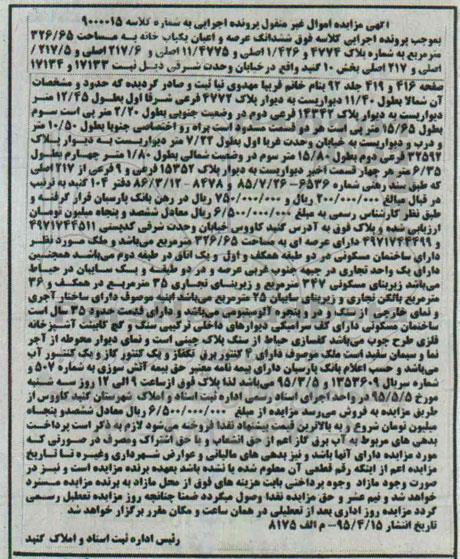 آگهی مزایده اموال غیر منقول پرونده اجرایی به شماره کلاسه ۹۰۰۰۰۱۵
بموجب پرونده اجرایی کلاسه فوق ششدانگ عرصه و اعیان یکباب خانه به مساحت ۳۲۶/۶۵
مترمربع به شماره پلاک ۴۷۷۴ و ۱/۴۲۶ اصلی و ۱۱/۴۷۷۵ اصلی و ۲۱۷/۶ اصلی و ۲۱۷/۵
اصلی و ۲۱۷ اصلی بخش ۱۰ گنبد واقع در خیابان وحدت شرقی ذیل ثبت ۱۷۱۳۳ و ۱۷۱۳۴
صفحه ۴۱۶ و ۴۱۹ جلد ۹۲ بنام خانم فریبا مهدوی نیا ثبت و صادر گردیده که حدود و مشخصات
آن شمالا بطول ۱۱/۴۰ دیواریست به دیوار پلاک ۴۷۷۲ فرعی شرقا اول بطول ۱۲/۴۵ متر
دیواریست به دیوار پلاک ۱۴۳۴۲ فرعی دوم در وضعیت جنوبی بطول ۲/۲۰ متر پی است سوم
بطول ۱۵/۶۵ متر پی است هر دو قسمت مسدود است براه رو اختصاصی جنوبا بطول ۱۰/۵۰ متر
و درب و دیواریست به خیابان وحدت غربا اول بطول ۷/۲۳ متر دیواریست به دیوار پلاک
۳۳۵۹۲ فرعی دوم بطول ۱۵/۸۰ متر سوم در وضعیت شمالی بطول ۱/۸۰ متر چهارم بطول
۶/۳۵ متر هر چهار قسمت اخیر دیواریست به دیوار پلاک ۱۵۳۵۲ فرعی و ۹ فرعی از ۲۱۷ اصلی
که طبق سند رهنی شماره ۶۵۳۶- ۸۵/۷/۲۶ و ۸۴۷۸ - ۸۶/۳/۱۲ دفتر ۱۰۴ گنبد به ترتیب
در قبال مبالغ ۲۰۰/۰۰۰/۰۰۰ ریال و ۷۵۰/۰۰۰/۰۰۰ ریال در رهن بانک پارسیان قرار گرفته و
طبق نظر کارشناس رسمی به مبلغ ۶/۵۰۰/۰۰۰/۰۰۰ ریال معادل ششصد و پنجاه میلیون تومان
ارزیابی شده و پلاک فوق به آدرس گنبد کاووس خیابان وحدت شرقی کدپستی ۴۹۷۱۷۴۴۵۱۱
و ۴۹۷۱۷۴۴۴۹۹ دارای عرصه ای به مساحت ۳۲۶/۶۵ مترمربع می‌باشد و ملک مورد نظر
دارای ساختمان مسکونی در دو طبقه همکف و اول و یک اتاق در طبقه دوم می‌باشد همچنین
دارای یک واحد تجاری در جبهه جنوب غربی عرصه و در دو طبقه و یک سایبان در حیاط
می‌باشد زیربنای مسکونی ۳۴۷ مترمربع و زیربنای تجاری ۳۵ مترمربع در همکف و ۳۶
مترمربع بالکن تجاری و زیربنای سایبان ۲۵ مترمربع می‌باشد بنای موصوف دارای ساختار آجری
و نمای خارجی از سنگ و آجر و پنجره آلومینیومی می‌باشد و دارای قدمت حدود ۳۵ سال است
ساختمان مسکونی دارای کف سرامیکی دیوارهای داخلی ترکیبی سنگ و گچ کابینت آشپزخانه
فلزی طرح چوب می‌باشد کفسازی حیاط از سنگ پلاک چینی است و نمای دیوار محوطه از آجر
نما و سیمان سفید است ملک موصوف دارای ۲ کنتور برق تکفاز و یک کنتور گاز و یک کنتور آب
می‌باشد و حسب اعلام بانک پارسیان دارای بیمه نامه معتبر حق بیمه آتش سوزی به شماره ۵۰۷ و
شماره سریال ۱۳۵۳۶۰۹ و ۹۵/۳/۵ می‌باشد لذا پلاک فوق از ساعت ۹ الی ۱۲ روز سه شنبه
مورخ ۹۵/۵/۵ در واحد اجرای اسناد رسمی اداره ثبت اسناد و املاک شهرستان گنبد کاووس از
طریق مزایده به فروش می‌رسد مزایده از مبلغ ۶/۵۰۰/۰۰۰/۰۰۰ ریال معادل ششصد و پنجاه
میلیون تومان شروع و به بالاترین قیمت پیشنهاد نقدا فروخته می‌شود لازم به ذکر است پرداخت
بدهی های مربوط به آب برق گاز اعم از حق انشعاب و یا حق اشتراک و مصرف در صورتی که
مورد مزایده دارای آنها باشد و نیز بدهی های مالیاتی و عوارض شهرداری وغیره تا تاریخ
مزایده اعم از اینکه رقم قطعی آن معلوم شده یا نشده باشد بعهده برنده مزایده است و نیز در
صورت وجود مازاد وجوه پرداختی بابت هزینه های فوق از محل مازاد به برنده مزایده مسترد
خواهد شد و نیم عشر و حق مزایده نقدا وصول میگردد ضمنا چنانچه روز مزایده تعطیل رسمی
گردد مزایده روز اداری بعد از تعطیلی در همان ساعت و مکان مقرر برگزار خواهد شد
تاریخ انتشار ۹۵/۴/۱۵- م الف ۸۱۷۵
رئیس اداره ثبت اسناد و املاک گنبد